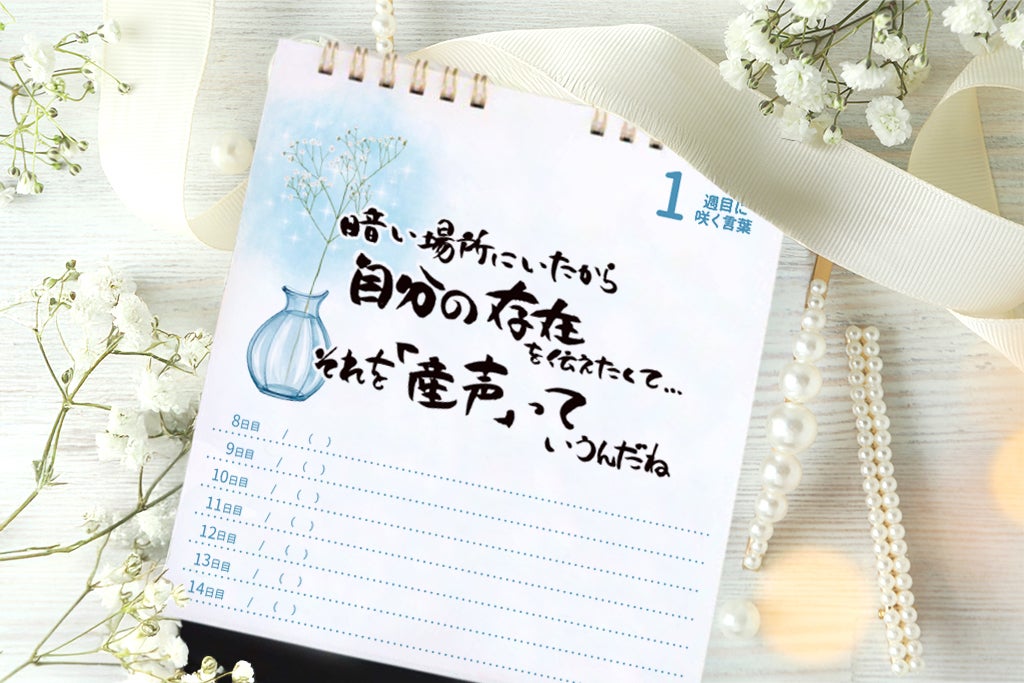 1
週目に
咲く言葉
暗い場所にいたから
自分の存在
を伝えたくて…
それを「産声」って
いうんだね
8日目 / ( )
9日目 / ( )
10日目 / ( )
11日目 / ( )
12日目 / ( )
13日目 / ( )
14日目 / ( )